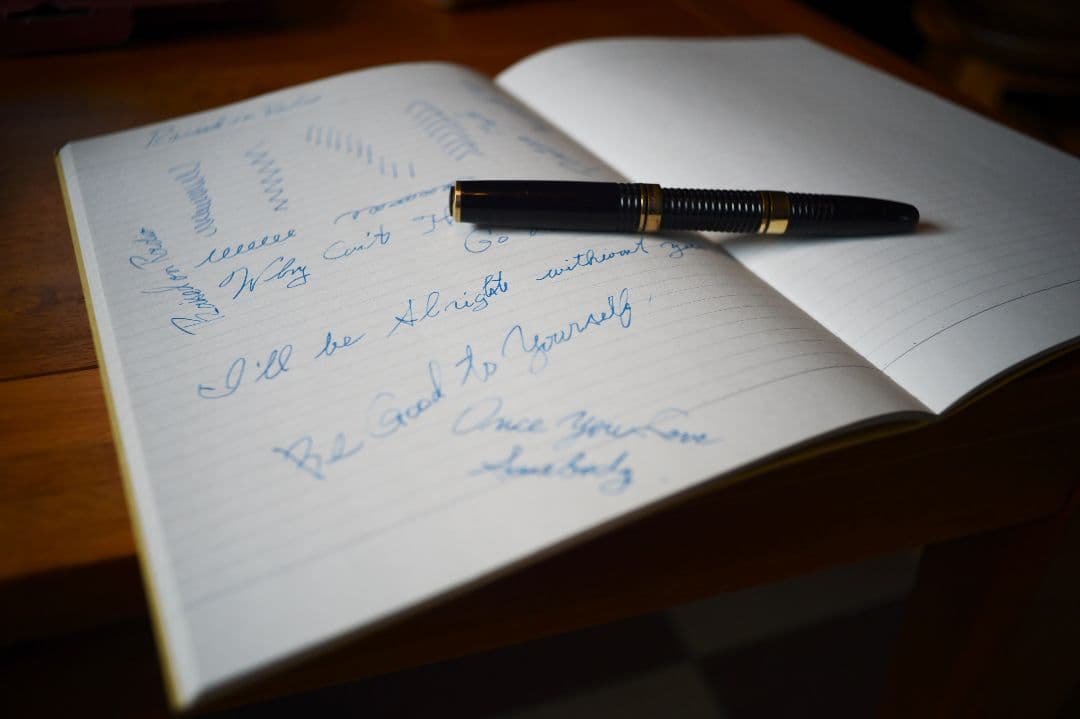 Raised on Radio
Raised on Radio
Why Can't
Go
I'll be Alright without
Be Good to Yourself
Once You Love
Somebody